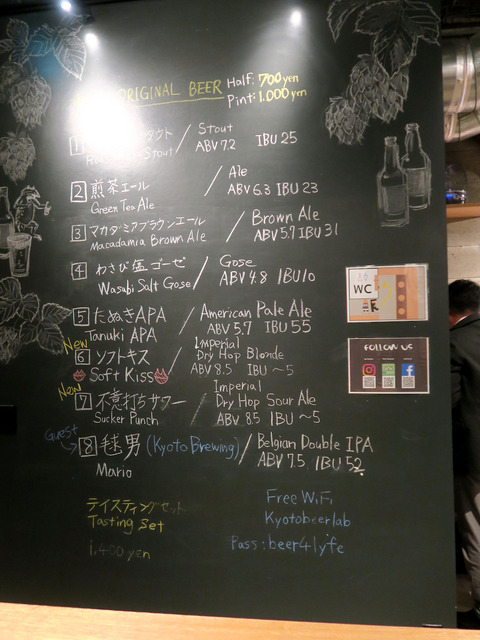 ORIGINAL BEER
Half: 700 yen
Pint: 1,000 yen
1 Stout / Stout
ABV 7.2 IBU 25
2 煎茶エール / Ale
Green Tea Ale ABV 6.3 IBU 23
3 マカダミアブラウンエール / Brown Ale
Macadamia Brown Ale ABV 5.7 IBU 31
4 わさび塩ゴーゼ / Gose
Wasabi Salt Gose ABV 4.8 IBU 10
5 たぬきAPA / American Pale Ale
Tanuki APA ABV 5.7 IBU 55
New
6 ソフトキス / Imperial Dry Hop Blonde
Soft Kiss ABV 8.5 IBU ~5
New
7 不意打ちサワー / Imperial Dry Hop Sour Ale
Sucker Punch ABV 8.5 IBU ~5
Guest
8 毬男 (Kyoto Brewing) / Belgian Double IPA
Mario ABV 7.5 IBU 52
テイスティングセット
Tasting Set
1,400 yen
Free WiFi
Kyotobeerlab
Pass: beer4lyfe
WC
FOLLOW US